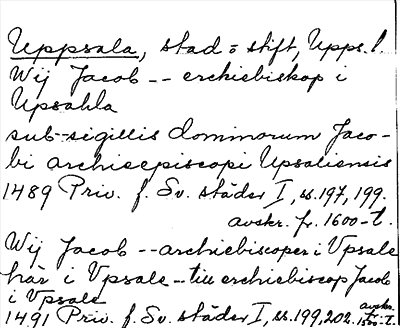 Uppsala, stad o stift, Upps. l.
Wij Jacob -- erchiebiskop i
Upsahla
sub sigillis dominorum Jaco-
bi archiepiscopi Upsaliensis
1489 Priv. f. Sv. städer I, ss. 197, 199.
avskr. fr. 1600-t.
Wij Jacob -- archiebiscoper i Vpsale
här i Vpsale -- till erchiebiscop Jacob
i Vpsale
1491 Priv. f. Sv. städer I, ss. 199, 202. avskr. 1500-t.